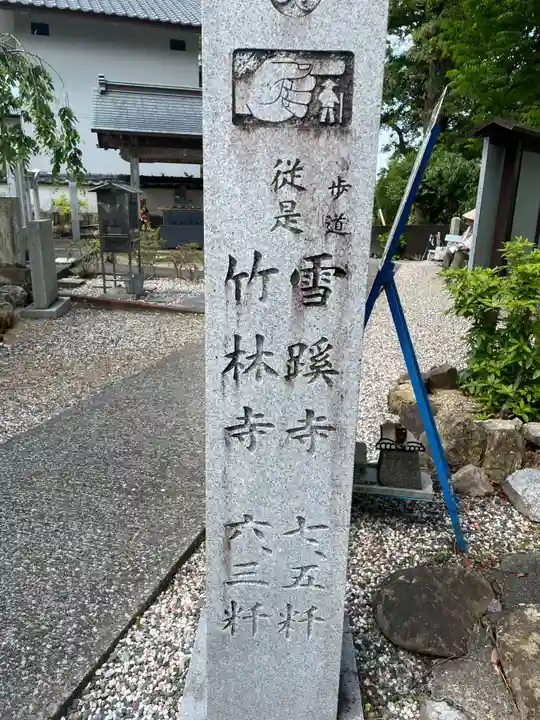 歩道
雪蹊寺 七、五粁
従是
竹林寺 六、三粁